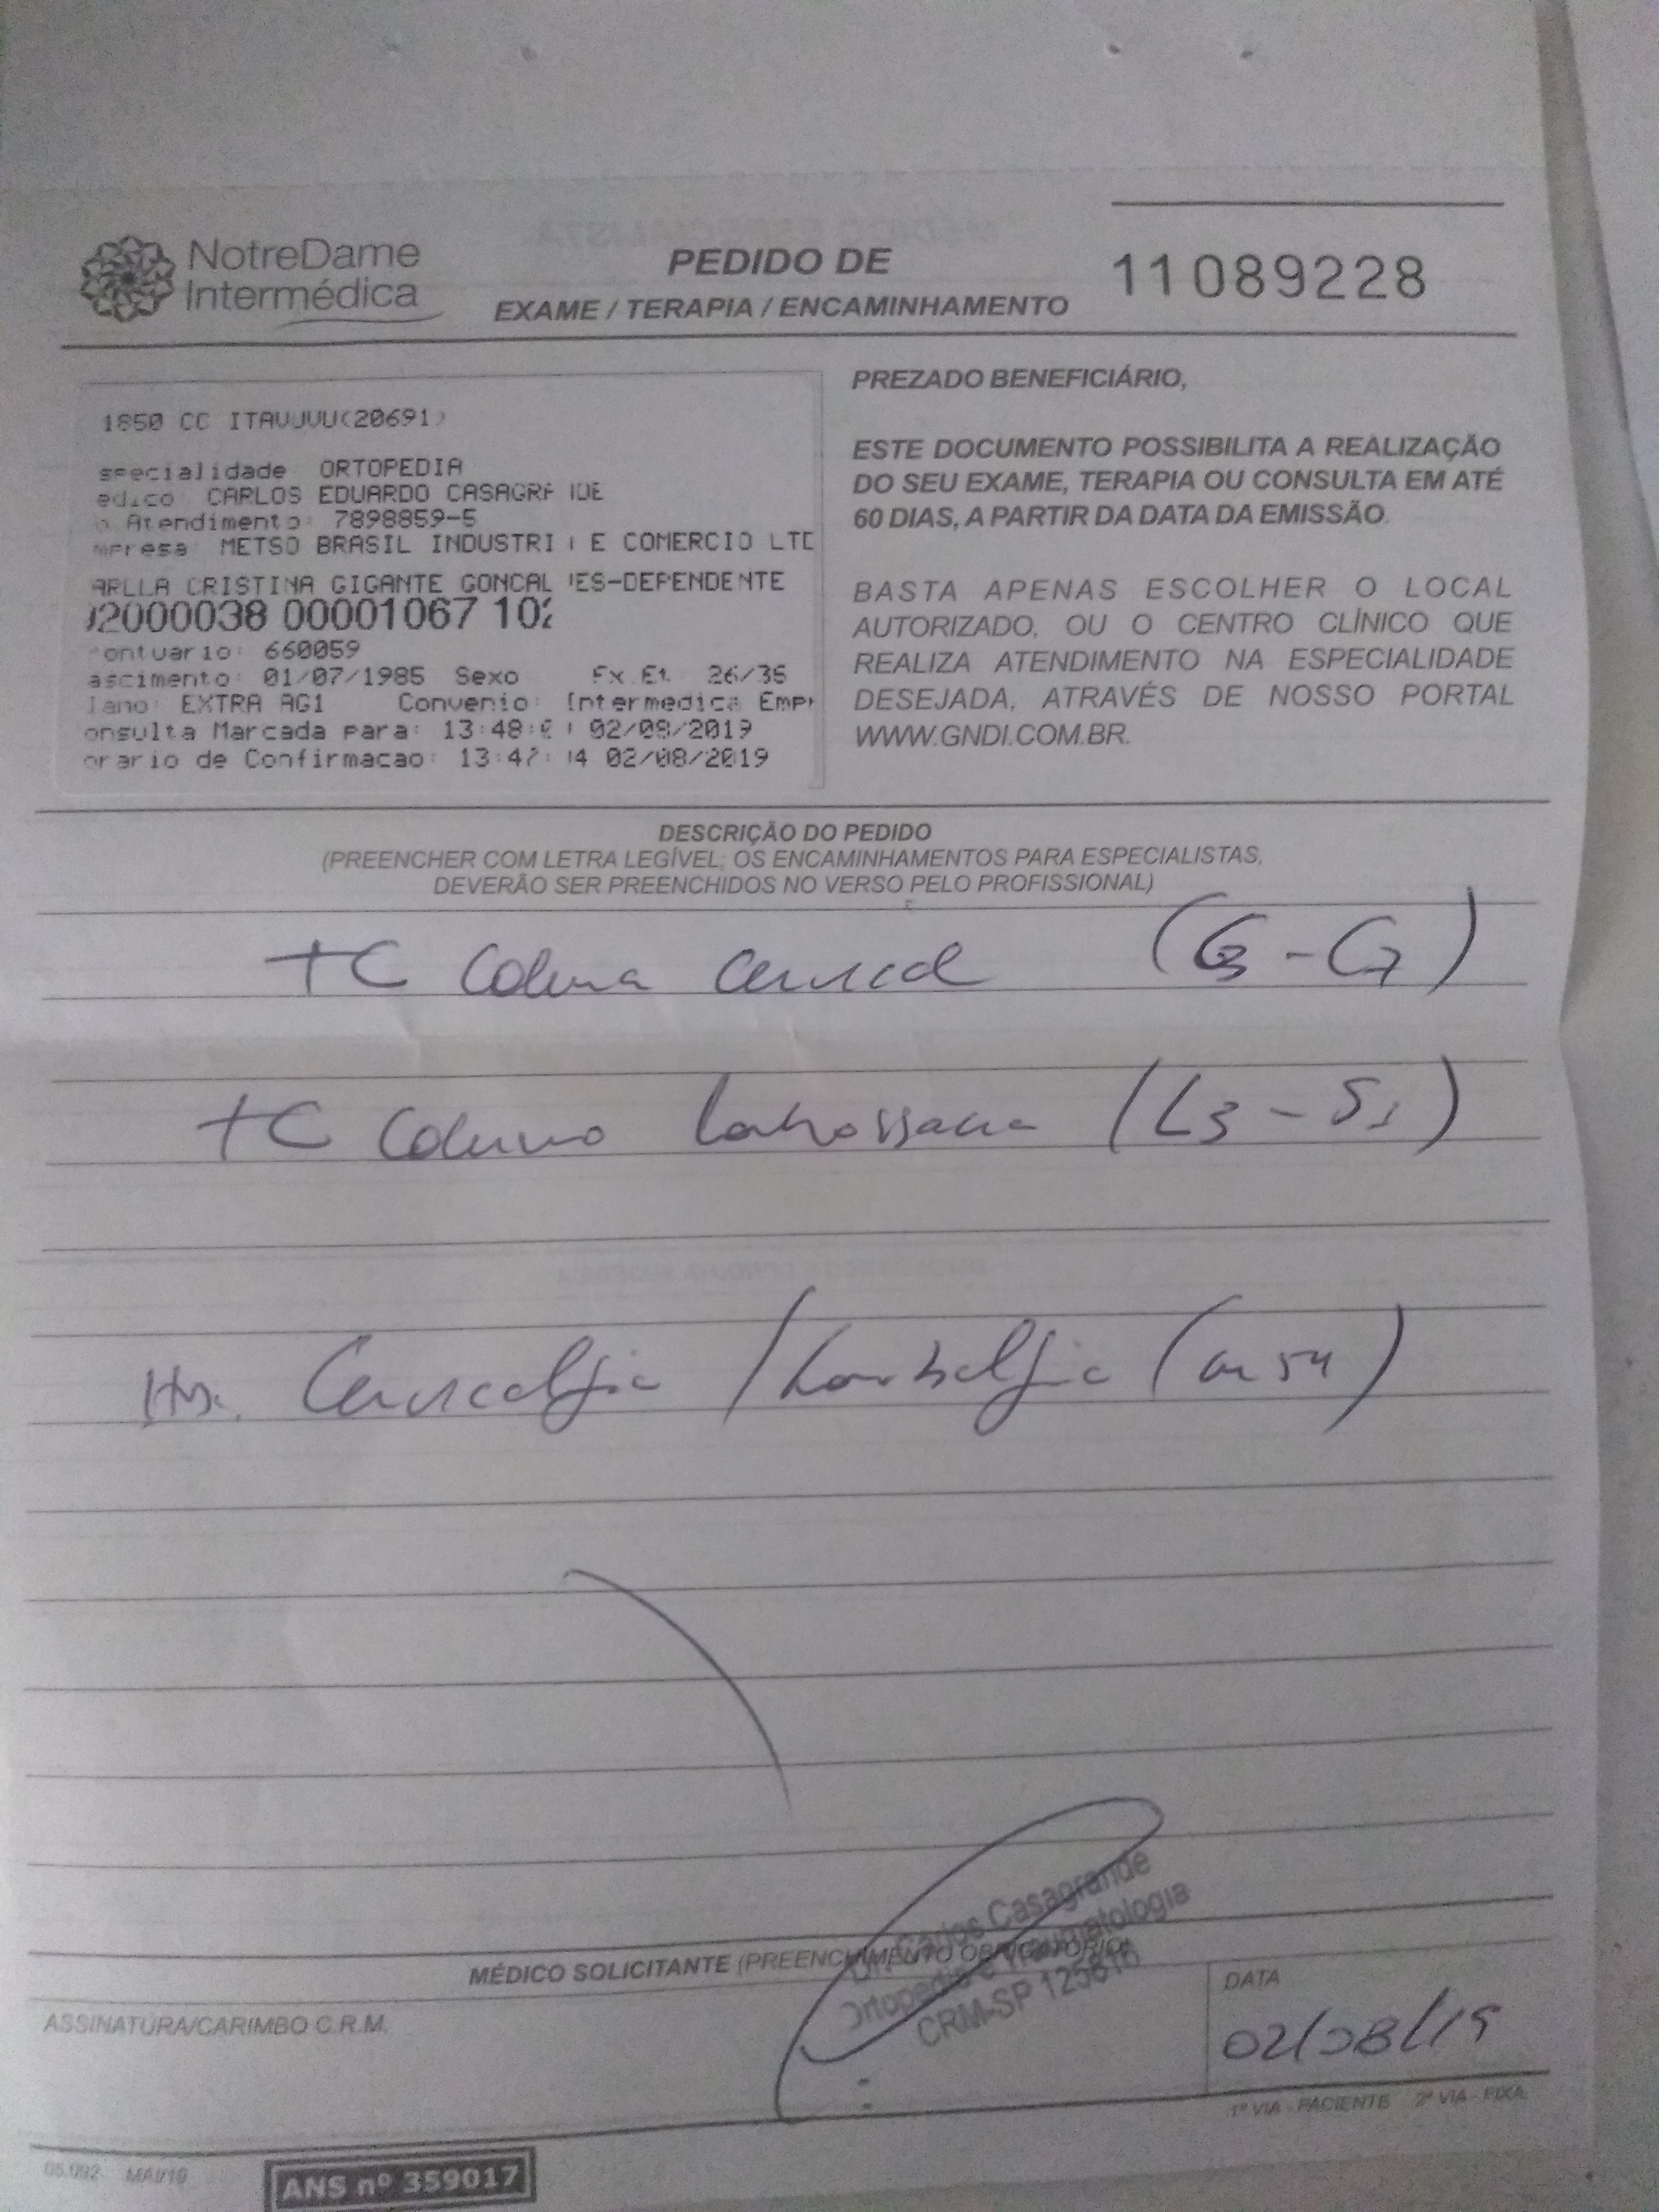 NotreDame
Intermédica
PEDIDO DE
EXAME / TERAPIA / ENCAMINHAMENTO
11089228
1850 CC ITAVUVU(20691)
specialidade ORTOPEDIA
edico: CARLOS EDUARDO CASAGR IDE
o Atendimento: 7898859-5
mpresa: METSO BRASIL INDUSTRI E COMERCIO LTD
ARLLA CRISTINA GIGANTE GONCAL ES-DEPENDENTE
2000038 00001067 102
ontuario: 660059
ascimento: 01/07/1985 Sexo Ex.Et. 26/35
lano: EXTRA AG1 Convenio: Intermedica Emp
onsulta Marcada para: 13:48: 02/08/2019
orario de Confirmacao: 13:47: 14 02/08/2019
PREZADO BENEFICIÁRIO,
ESTE DOCUMENTO POSSIBILITA A REALIZAÇÃO
DO SEU EXAME, TERAPIA OU CONSULTA EM ATÉ
60 DIAS, A PARTIR DA DATA DA EMISSÃO.
BASTA APENAS ESCOLHER O LOCAL
AUTORIZADO, OU O CENTRO CLÍNICO QUE
REALIZA ATENDIMENTO NA ESPECIALIDADE
DESEJADA, ATRAVÉS DE NOSSO PORTAL
WWW.GNDI.COM.BR.
DESCRIÇÃO DO PEDIDO
(PREENCHER COM LETRA LEGÍVEL; OS ENCAMINHAMENTOS PARA ESPECIALISTAS,
DEVERÃO SER PREENCHIDOS NO VERSO PELO PROFISSIONAL)
TC Coluna Cervical (C3 - C7)
TC Coluna Lombossacra (L3 - S1)
Cervicalgia / Lombalgia (M54)
MÉDICO SOLICITANTE (PREENCHIMENTO OBRIGATÓRIO)
ASSINATURA/CARIMBO C.R.M.
Dr. Carlos Casagrande
Ortopedia e Traumatologia
CRM-SP
DATA
02/08/19
1ª VIA - PACIENTE 2ª VIA - FIXA
06.092 MAI/19
ANS nº 359017